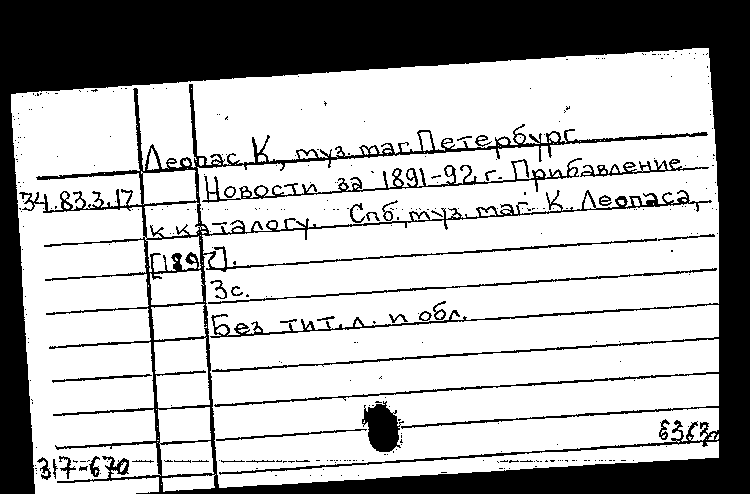 Леопас, К., муз. маг. Петербург.
34.83.3.17 Новости за 1891-92 г. Прибавление
к каталогу. Спб., муз. маг. К. Леопаса,
[1892].
3 с.
Без тит. л. и обл.
317-670